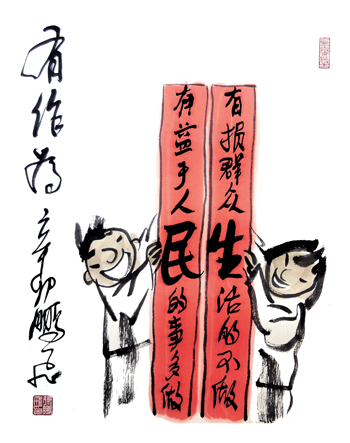 有损群众生活的不做
有益于人民的事多做
有作为
辛卯鹏飞